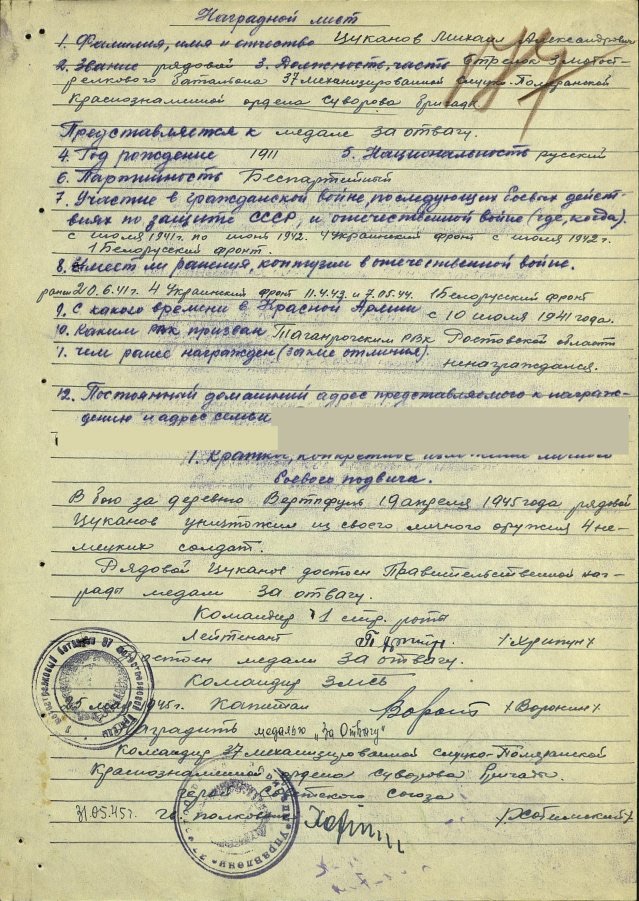 Наградной лист
1. Фамилия, имя и отчество Цуканов Михаил Александрович
2. Звание рядовой 3. Должность, часть стрелок 3 мотост-
релкового батальона 37 механизированной слуцко-Померанской
Краснознаменной ордена Суворова бригады
Представляется к медале За отвагу.
4. Год рождение 1911 5. Национальность русский
6. Партийность Беспартийный
7. Участие в гражданской войне, последующих боевых дейст-
виях по защите СССР, и отечественной войне (где, когда).
с июля 1941г. по июнь 1942. 4 Украинский фронт с июля 1942г.
1 Белорусский фронт.
8. Имеет ли ранения, контузии в отечественной войне.
ранен 20.6.41г. 4 Украинский фронт 11.4.43 и 7.05.44. 1 Белорусский фронт
9. С какого времени в Красной Армии с 10 июля 1941 года.
10. Каким РВК призван Таганрогским РВК Ростовской области
11. чем ранее награжден (за какие отличия).
ненаграждался.
12. Постоянный домашний адрес представляемого к награж-
дению и адрес семьи
1. Краткое, конкретное изложение личного
боевого подвига.
В бою за деревню Вертпфуль 19 апреля 1945 года рядовой
Цуканов уничтожил из своего личного оружия 4 не-
мецких солдат.
Рядовой Цуканов достоин Правительственной наг-
рады медали За отвагу.
Командир 1 стр. роты
Лейтенант /Хрипун/
Достоен медали За отвагу.
Командир 3 мсб
25 мая 1945г. Капитан /Воронин/
Наградить медалью „За Отвагу"
Командир 37 механизированной слуцко-Померанской
Краснознаменной ордена Суворова бригады.
Герой Советского Союза
31.05.45г. гв. полковник /Хотимский/